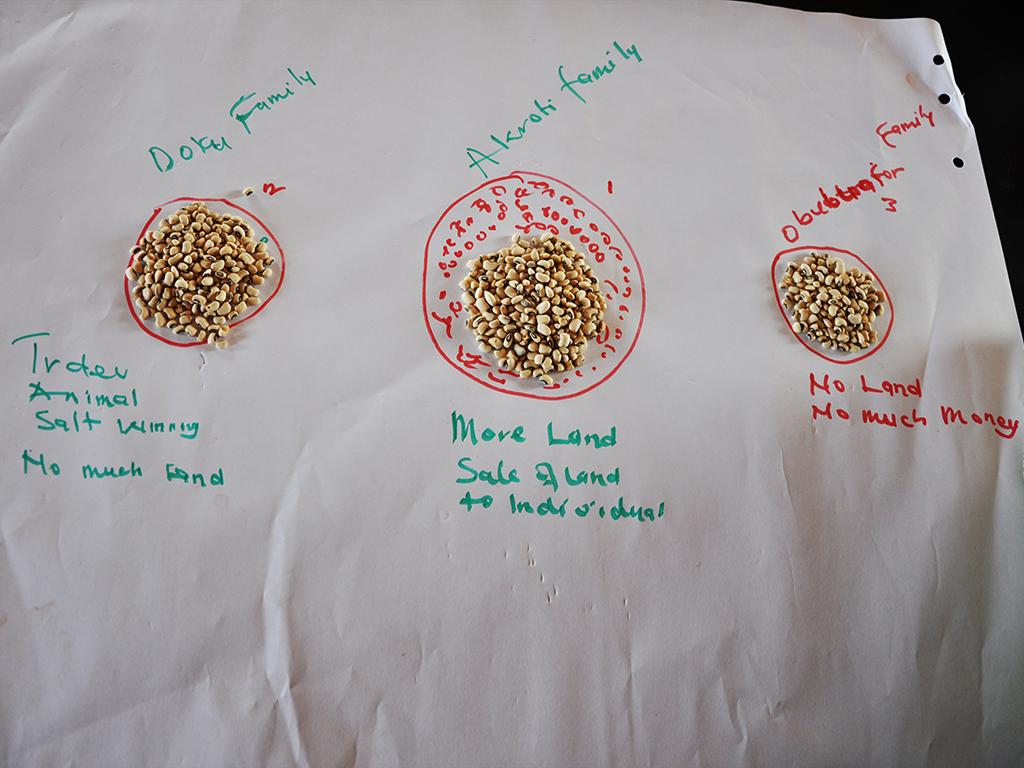 Doku Family
2
Trder
Animal
Salt winniy
No much Land
Akroti family
1
More Land
Sale of land
to Individual
Family
3
No Land
No much Money